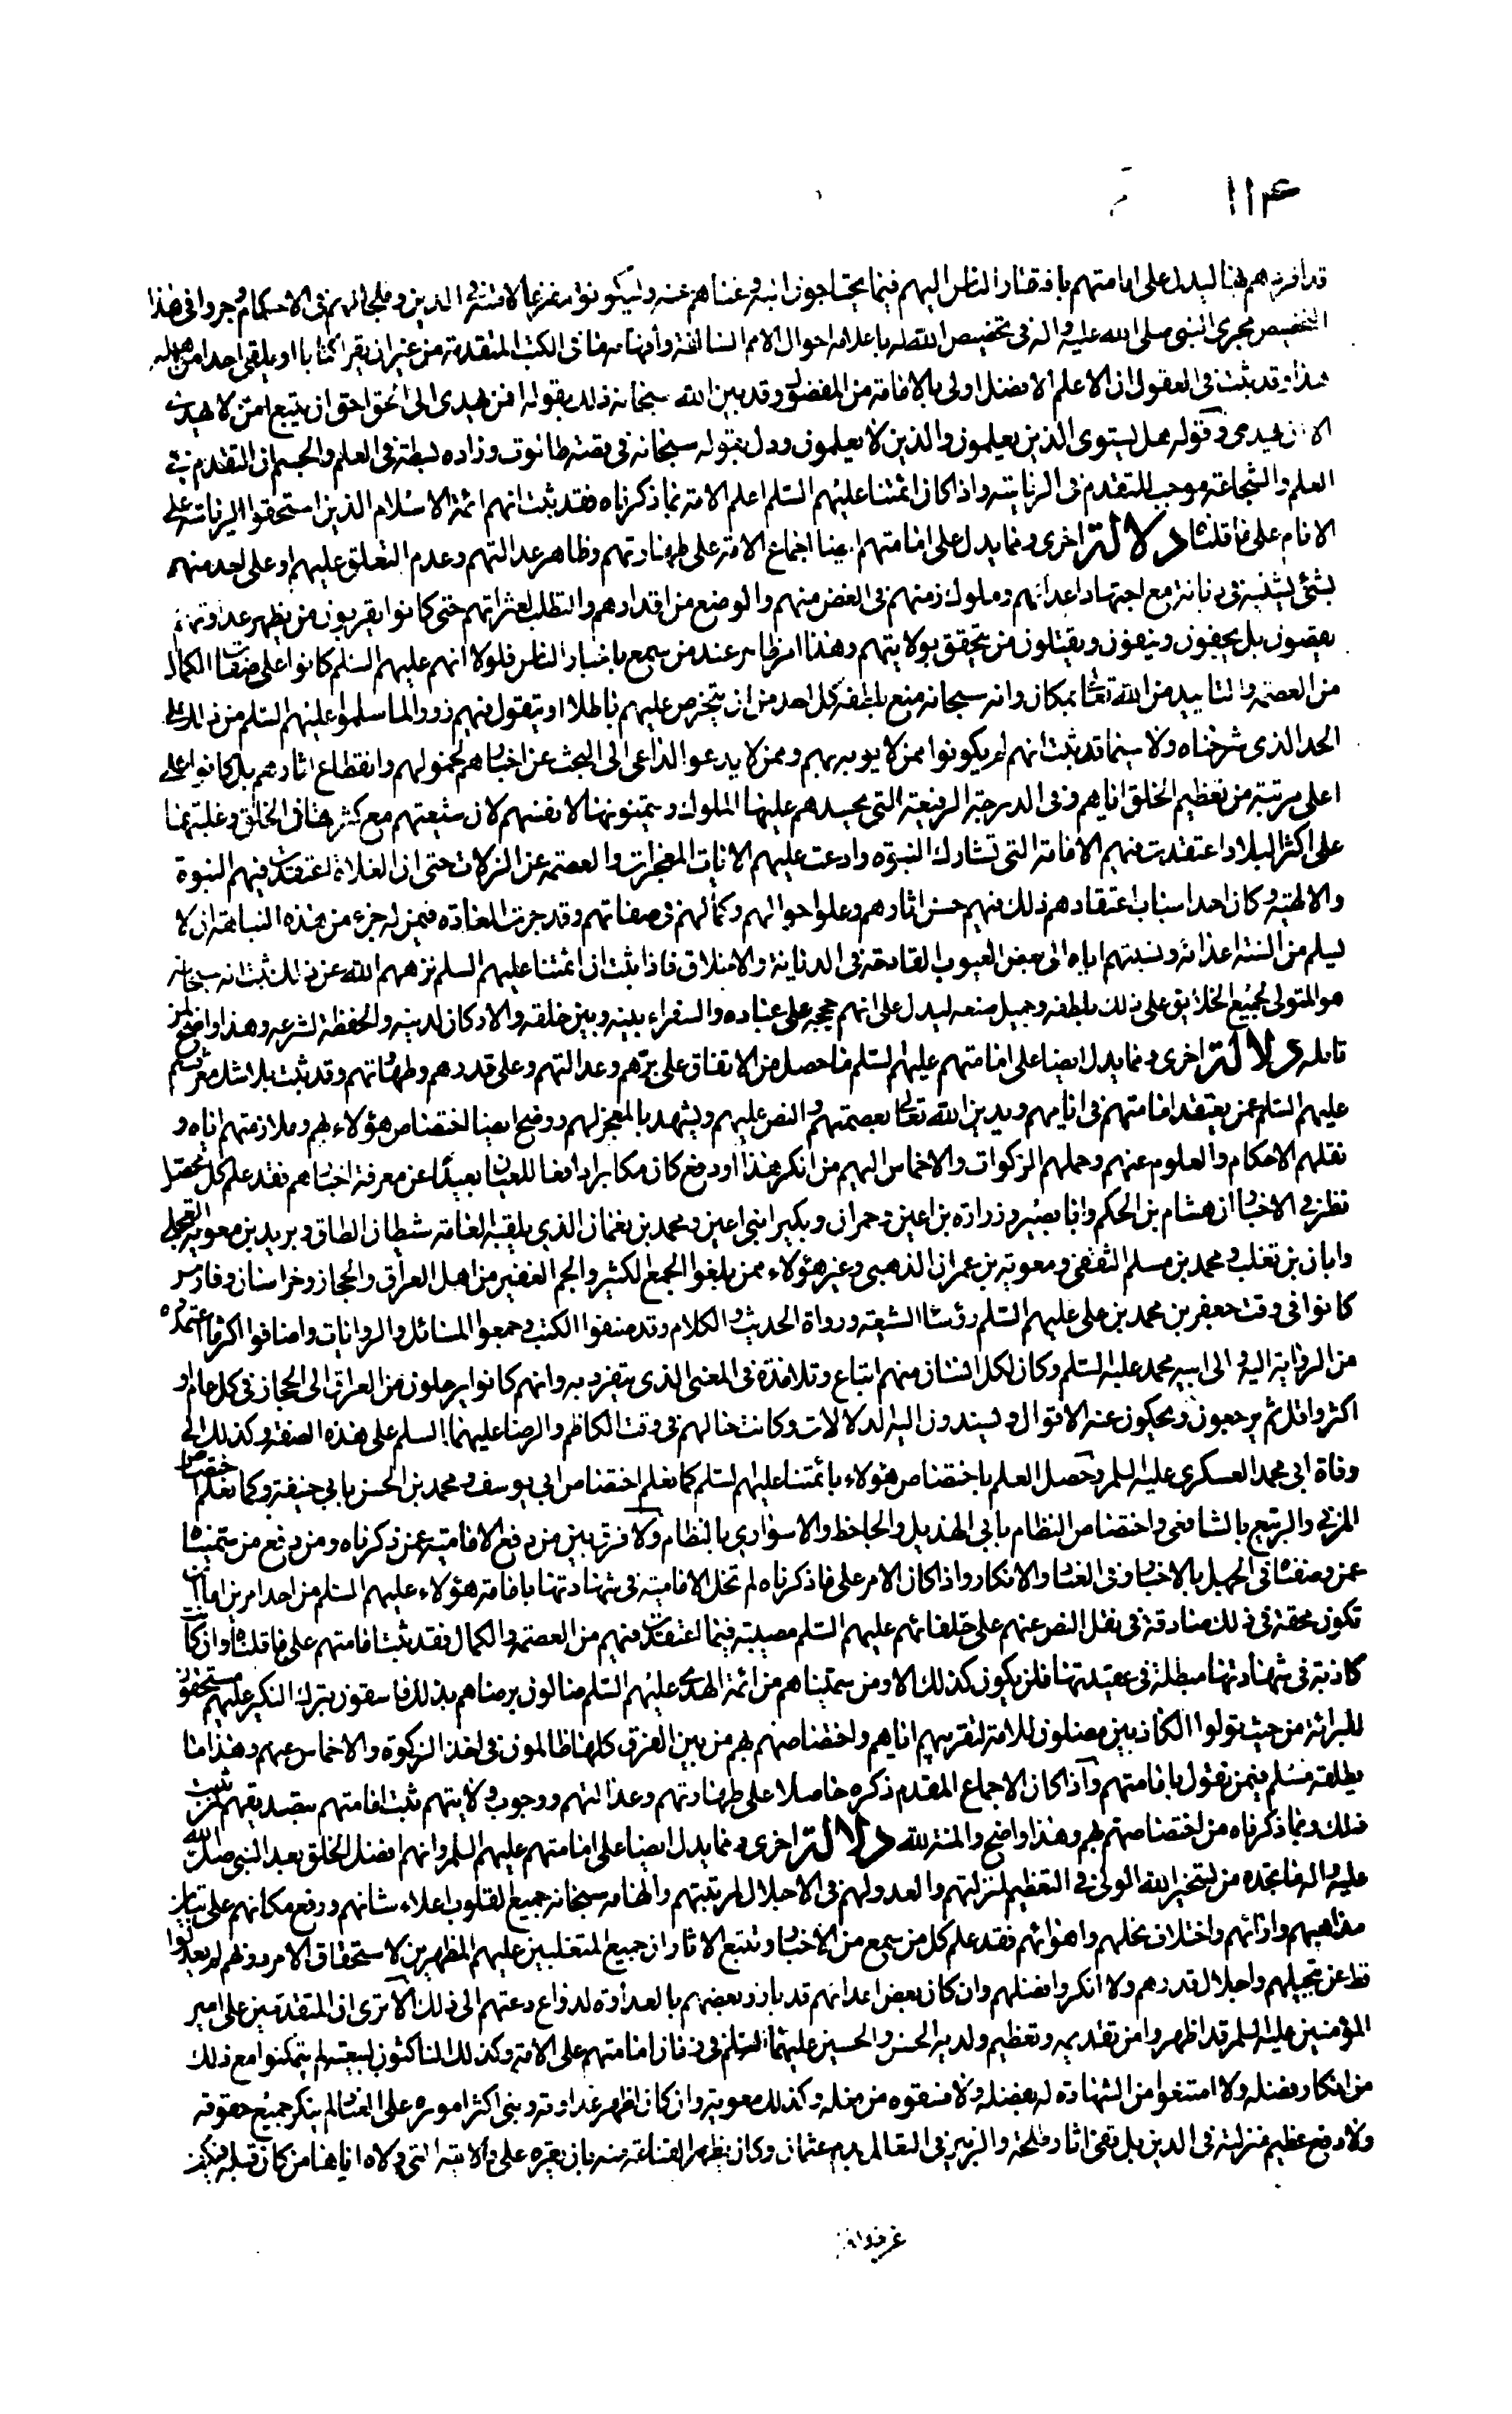 ١١٤
قد افردهم بها ليدل على امامتهم بافتقار الناس اليهم فيما يحتاجون اليه وغناهم عنهم وليكونوا مفزعا لامته في الدين وملجأ لهم في الاحكام وجروا في هذا
التخصيص مجرى النبي صلى الله عليه واله في تخصيص الله له باعلامه احوال الامم السالفة وافهامه ما في الكتب المتقدمة من غير ان يقرا كتابا او يلقى احدا من اهله
هذا وقد ثبت في العقول ان الاعلم الافضل اولى بالامامة من المفضول وقد بين الله سبحانه ذلك بقوله افمن يهدى الى الحق احق ان يتبع امن لا يهدى
الا ان يهدى وقوله هل يستوى الذين يعلمون والذين لا يعلمون ودل بقوله سبحانه في قصة طالوت وزاده بسطة في العلم والجسم ان التقدم في
العلم والشجاعة موجب للتقدم في الرياسة واذا كان ائمتنا عليهم السلم اعلم الامة بما ذكرناه فقد ثبت انهم ائمة الاسلام الذين استحقوا الرياسة على
الانام على ما قلناه دلالة اخرى ومما يدل على امامتهم ايضا اجماع الامة على طهارتهم وظاهر عدالتهم وعدم التعلق عليهم او على احد منهم
بشئ يشينه في ديانته مع اجتهاد اعدائهم وملوك ازمنتهم في الغض منهم والوضع من اقدارهم والتطلب لعثراتهم حتى كانوا يقربون من يظهر عداوتهم
ويقصون بل يجفون وينفون ويقتلون من يتحقق بولايتهم وهذا امر ظاهر عند من سمع باخبار الناس فلولا انهم عليهم السلم كانوا على صفات الكمال
من العصمة والتاييد من الله تعالى بمكان وانه سبحانه منع بلطفه كل احد من ان يتخرص عليهم باطلا او يتقول فيهم زورا لما سلموا عليهم السلم من ذلك على
الحد الذى شرحناه ولا سيما قد ثبت انهم لم يكونوا ممن لا يؤبه بهم وممن لا يدعوا الداعى الى البحث عن اخبارهم لخمولهم وانقطاع اثارهم بل كانوا على
اعلى مرتبة من تعظيم الخلق اياهم وفي الدرجة الرفيعة التى يحسدهم عليها الملوك ويتمنونها لانفسهم لان شيعتهم مع كثرتها في الخلق وغلبتها
على اكثر البلاد اعتقدت فيهم الامامة التى تشارك النبوة وادعت عليهم الايات المعجزات والعصمة عن الزلات حتى ان الغلاة اعتقدت فيهم النبوة
والالهية وكان احد اسباب اعتقادهم ذلك فيهم حسن اثارهم وعلو احوالهم وكمالهم في صفاتهم وقد جرت العادة فيمن له جزء من هذه النباهة ان لا
يسلم من السنة اعدائه ونسبتهم اياه الى بعض العيوب القادحة في الديانة والاخلاق فاذا ثبت ان ائمتنا عليهم السلم نزههم الله عن ذلك ثبت انه سبحانه
هو المتولى لجميع الخلائق على ذلك بلطفه وجميل صنعه ليدل على انهم حججه على عباده والسفراء بينه وبين خلقه والاركان لدينه والحفظة لشرعه وهذا واضح لمن
تامله دلالة اخرى ومما يدل ايضا على امامتهم عليهم السلم ما حصل من الاتفاق على برهم وعدالتهم وعلى قدرهم وطهارتهم وقد ثبت بلا شك معرفتهم
عليهم السلم عمن يعتقد امامتهم في ايامهم ويدين الله تعالى بعصمتهم والنص عليهم ويشهد بالمعجز لهم ووضح ايضا اختصاص هؤلاء بهم وملازمتهم اياهم و
نقلهم الاحكام والعلوم عنهم وحملهم الزكوات والاخماس اليهم من انكر هذا او دفع كان مكابرا دافعا للعيان بعيدا عن معرفة اخبارهم فقد علم كل محصل
نظر في الاخبار ان هشام بن الحكم وابا بصير وزرارة بن اعين وحمران وبكير ابنى اعين ومحمد بن نعمان الذى يلقبه العامة شيطان الطاق وبريد بن معوية العجلي
وابان بن تغلب ومحمد بن مسلم الثقفى ومعوية بن عمران الذهبى وغير هؤلاء ممن بلغوا الجمع الكثير والجم الغفير من اهل العراق والحجاز وخراسان وفارس
كانوا في وقت جعفر بن محمد بن على عليهم السلم رؤسا الشيعة ورواة الحديث والكلام وقد صنفوا الكتب وجمعوا المسائل والروايات واضافوا اكثر ما اعتمدوه
من الرواية اليه والى ابيه محمد عليه السلم وكان لكل انسان منهم اتباع وتلامذة في المعنى الذى يتفرد به وانهم كانوا يرحلون من العراق الى الحجاز في كل عام او
اكثر واقل ثم يرجعون ويحكون عنه الاقوال ويسندون اليه الدلالات وكانت حالهم في وقت الكاظم والرضا عليهما السلم على هذه الصفة وكذلك الى
وفاة ابى محمد العسكرى عليه السلم وحصل العلم باختصاص هؤلاء بائمتنا عليهم السلم كما نعلم اختصاص ابى يوسف ومحمد بن الحسن بابى حنيفة وكما نعلم اختصاص
المزنى والربيع بالشافعى واختصاص النظام بابى الهذيل والجاحظ والاسوارى بالنظام ولا فرق بين من دفع الامامية عمن ذكرناه ومن دفع من سميناه
عمن وصفناه في الجهل بالاخبار وفى العناد والانكار واذا كان الامر على ما ذكرناه لم تخل الامامية في شهادتها بامامة هؤلاء عليهم السلم من احد امرين اما ان
تكون محقة في ذلك صادقة في نقل النص عنهم على خلفائهم عليهم السلم مصيبة فيما اعتقدت فيهم من العصمة والكمال فقد ثبت امامتهم على ما قلناه وان كانت
كاذبة في شهادتها مبطلة في عقيدتها فلن يكون كذلك الا ومن سميناهم من ائمة الهدى عليهم السلم ضالون برضاهم بذلك فاسقون بترك النكير عليهم مستحقون
للبرائة من حيث تولوا الكاذبين مضلون للامة لتقريبهم اياهم واختصاصهم بهم من بين الفرق كلها ظالمون في اخذ الزكوة والاخماس عنهم وهذا ما
يطلقه مسلم فيمن نقول بامامتهم واذا كان الاجماع المقدم ذكره حاصلا على طهارتهم وعدالتهم ووجوب ولايتهم ثبت امامتهم بتصديقهم لمن اثبت
ذلك وبما ذكرناه من اختصاصهم بهم وهذا واضح والمنة لله دلالة اخرى ومما يدل ايضا على امامتهم عليهم السلم وانهم افضل الخلق بعد النبي صلى الله
عليه واله ما نجده من تسخير الله الولى في التعظيم لمنزلتهم والعدو لهم في الاجلال لمرتبتهم والهامه سبحانه جميع القلوب اعلاء شانهم ورفع مكانهم على تباين
مذاهبهم وارائهم واختلاف نحلهم واهوائهم فقد علم كل من سمع من الاخبار وتتبع الاثار ان جميع المتغلبين عليهم المظهرين لاستحقاق الامر دونهم لم يعدلوا
قط عن تبجيلهم واجلال قدرهم ولا انكروا فضلهم وان كان بعض اعدائهم قد بارز بعضهم بالعداوة لدواع دعتهم الى ذلك الا ترى ان المتقدمين على امير
المؤمنين عليه السلم قد اظهروا من تقديمه وتعظيم ولديه الحسن والحسين عليهما السلم في زمان امامتهم على الامة وكذلك الناكثون لبيعته لم يتمكنوا مع ذلك
من انكار فضله ولا امتنعوا من الشهادة له بفضله ولا فسقوه من فعله وكذلك معوية وان كان اظهر عداوته وبنى اكثر اموره على العناد لم ينكر جميع حقوقه
ولا دفع عظيم منزلته في الدين بل تقفى اثار طلحة والزبير في التعالم بدم عثمان وكان يظهر القناعة منه بان يقره على ولايته التى ولاه اياها من كان قبله فيكف